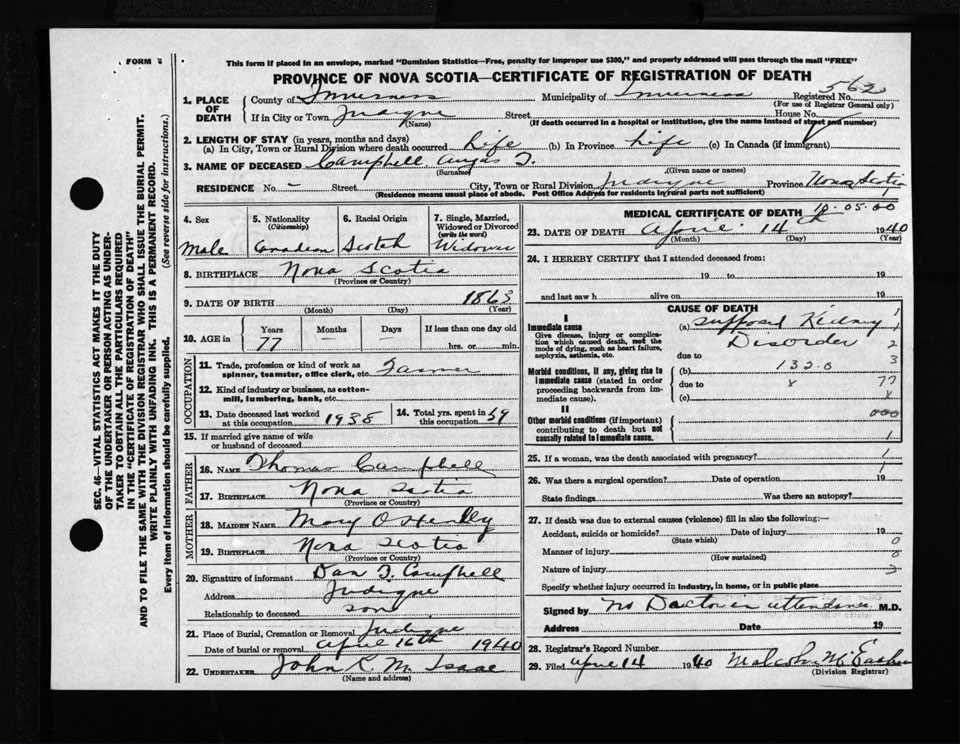 FORM
This form if placed in an envelope, marked "Dominion Statistics—Free, penalty for improper use $300," and properly addressed will pass through the mail "FREE"
PROVINCE OF NOVA SCOTIA—CERTIFICATE OF REGISTRATION OF DEATH
562
1. PLACE OF DEATH County of Inverness Municipality of Inverness Registered No.
(For use of Registrar General only)
If in City or Town Judique Street House No.
(Name) (If death occurred in a hospital or institution, give the name instead of street and number)
2. LENGTH OF STAY (in years, months and days)
(a) In City, Town or Rural Division where death occurred Life (b) In Province Life (c) In Canada (if immigrant)
3. NAME OF DECEASED Campbell Angus
(Surname) (Given name or names)
RESIDENCE No. - Street City, Town or Rural Division Judique Province Nova Scotia
(Residence means usual place of abode. Post Office Address for residents in rural parts not sufficient)
4. Sex Male
5. Nationality (Citizenship) Canadian
6. Racial Origin Scotch
7. Single, Married, Widowed or Divorced (write the word) Widower
8. BIRTHPLACE Nova Scotia
(Province or Country)
9. DATE OF BIRTH 1863
(Month) (Day) (Year)
10. AGE in Years 77 Months — Days — If less than one day old hrs. or min.
OCCUPATION
11. Trade, profession or kind of work as spinner, teamster, office clerk, etc. Farmer
12. Kind of industry or business, as cotton-mill, lumbering, bank, etc.
13. Date deceased last worked at this occupation 1938
14. Total yrs. spent in this occupation 59
15. If married give name of wife or husband of deceased
FATHER
16. NAME Thomas Campbell
17. BIRTHPLACE Nova Scotia
(Province or Country)
MOTHER
18. MAIDEN NAME Mary O Henley
19. BIRTHPLACE Nova Scotia
(Province or Country)
20. Signature of informant Dan J. Campbell
Address Judique
Relationship to deceased son
21. Place of Burial, Cremation or Removal Judique
Date of burial or removal April 16th 1940
22. UNDERTAKER John R. Mc Isaac
(Name and address)
MEDICAL CERTIFICATE OF DEATH
10-05-00
23. DATE OF DEATH April 14 1940
(Month) (Day) (Year)
24. I HEREBY CERTIFY that I attended deceased from:
19 to 19
and last saw h alive on 19
CAUSE OF DEATH
I
Immediate cause
Give disease, injury or complication which caused death, not the mode of dying, such as heart failure, asphyxia, asthenia, etc.
(a) Supposed Kidney Disorder
due to
Morbid conditions, if any, giving rise to immediate cause (stated in order proceeding backwards from immediate cause).
(b) 132.0
due to x
(c)
II
Other morbid conditions (if important) contributing to death but not causally related to immediate cause.
1
1
2
3
77
x
000
1
25. If a woman, was the death associated with pregnancy? 1
26. Was there a surgical operation? Date of operation 19
State findings Was there an autopsy?
27. If death was due to external causes (violence) fill in also the following:—
Accident, suicide or homicide? Date of injury 19
(State which)
Manner of injury
(How sustained)
Nature of injury
Specify whether injury occurred in industry, in home, or in public place
Signed by No Doctor in attendance M.D.
Address Date 19
28. Registrar's Record Number
29. Filed April 14 1940 Malcolm
(Division Registrar)
SEC. 46—VITAL STATISTICS ACT MAKES IT THE DUTY
OF THE UNDERTAKER OR PERSON ACTING AS UNDER-
TAKER TO OBTAIN ALL THE PARTICULARS REQUIRED
IN THE "CERTIFICATE OF REGISTRATION OF DEATH"
AND TO FILE THE SAME WITH THE DIVISION REGISTRAR WHO SHALL ISSUE THE BURIAL PERMIT.
WRITE PLAINLY WITH UNFADING INK. THIS IS A PERMANENT RECORD.
Every item of Information should be carefully supplied. (See reverse side for instructions.)